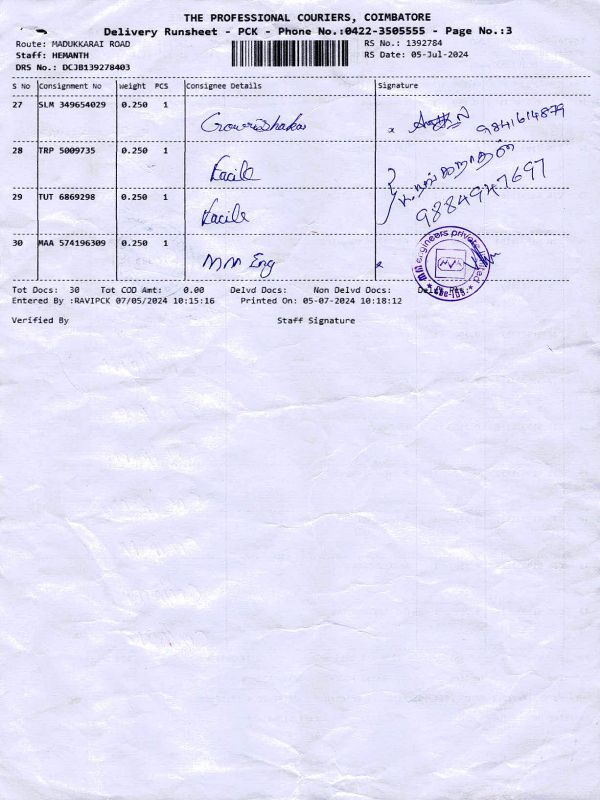 THE PROFESSIONAL COURIERS, COIMBATORE
Delivery Runsheet - PCK - Phone No.:0422-3505555 - Page No.:3
Route: MADUKKARAI ROAD RS No.: 1392784
Staff: HEMANTH RS Date: 05-Jul-2024
DRS No.: DCJB139278403
S No Consignment No Weight PCS Consignee Details Signature
27 SLM 349654029 0.250 1 9841614879
28 TRP 5009735 0.250 1 Facile
9884947697
29 TUT 6869298 0.250 1 Facile
30 MAA 574196309 0.250 1 MM Eng
engineers private
Tot Docs: 30 Tot COD Amt: 0.00 Delvd Docs: Non Delvd Docs:
Entered By :RAVIPCK 07/05/2024 10:15:16 Printed On: 05-07-2024 10:18:12
Verified By Staff Signature